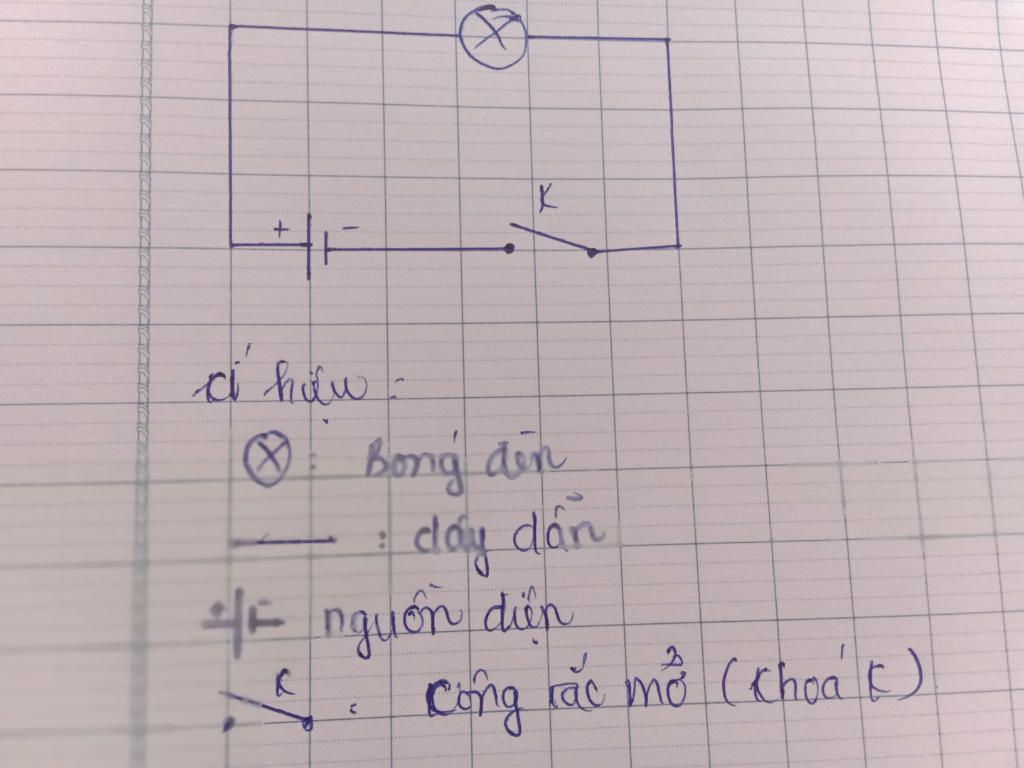 K
+ -
kí hiệu :
: Bóng đèn
: dây dẫn
+ - nguồn điện
K : công tắc mở (khoá K)